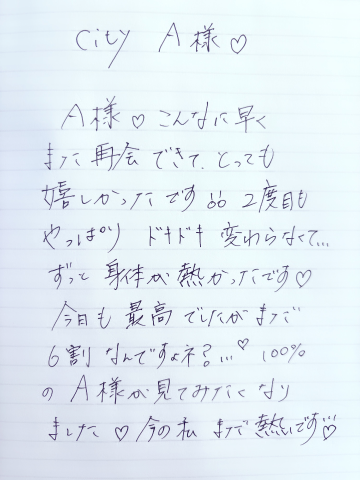 City A様♡
A様♡こんなに早く
また再会できて、とっても
嬉しかったです♡♡ 2度目も
やっぱり ドキドキ変わらなくて…
ずっと身体が熱かったです♡
今日も最高でしたがまだ
6割なんですよネ?…♡ 100%
のA様が見てみたくなり
ました♡今の私まだ熱いです♡